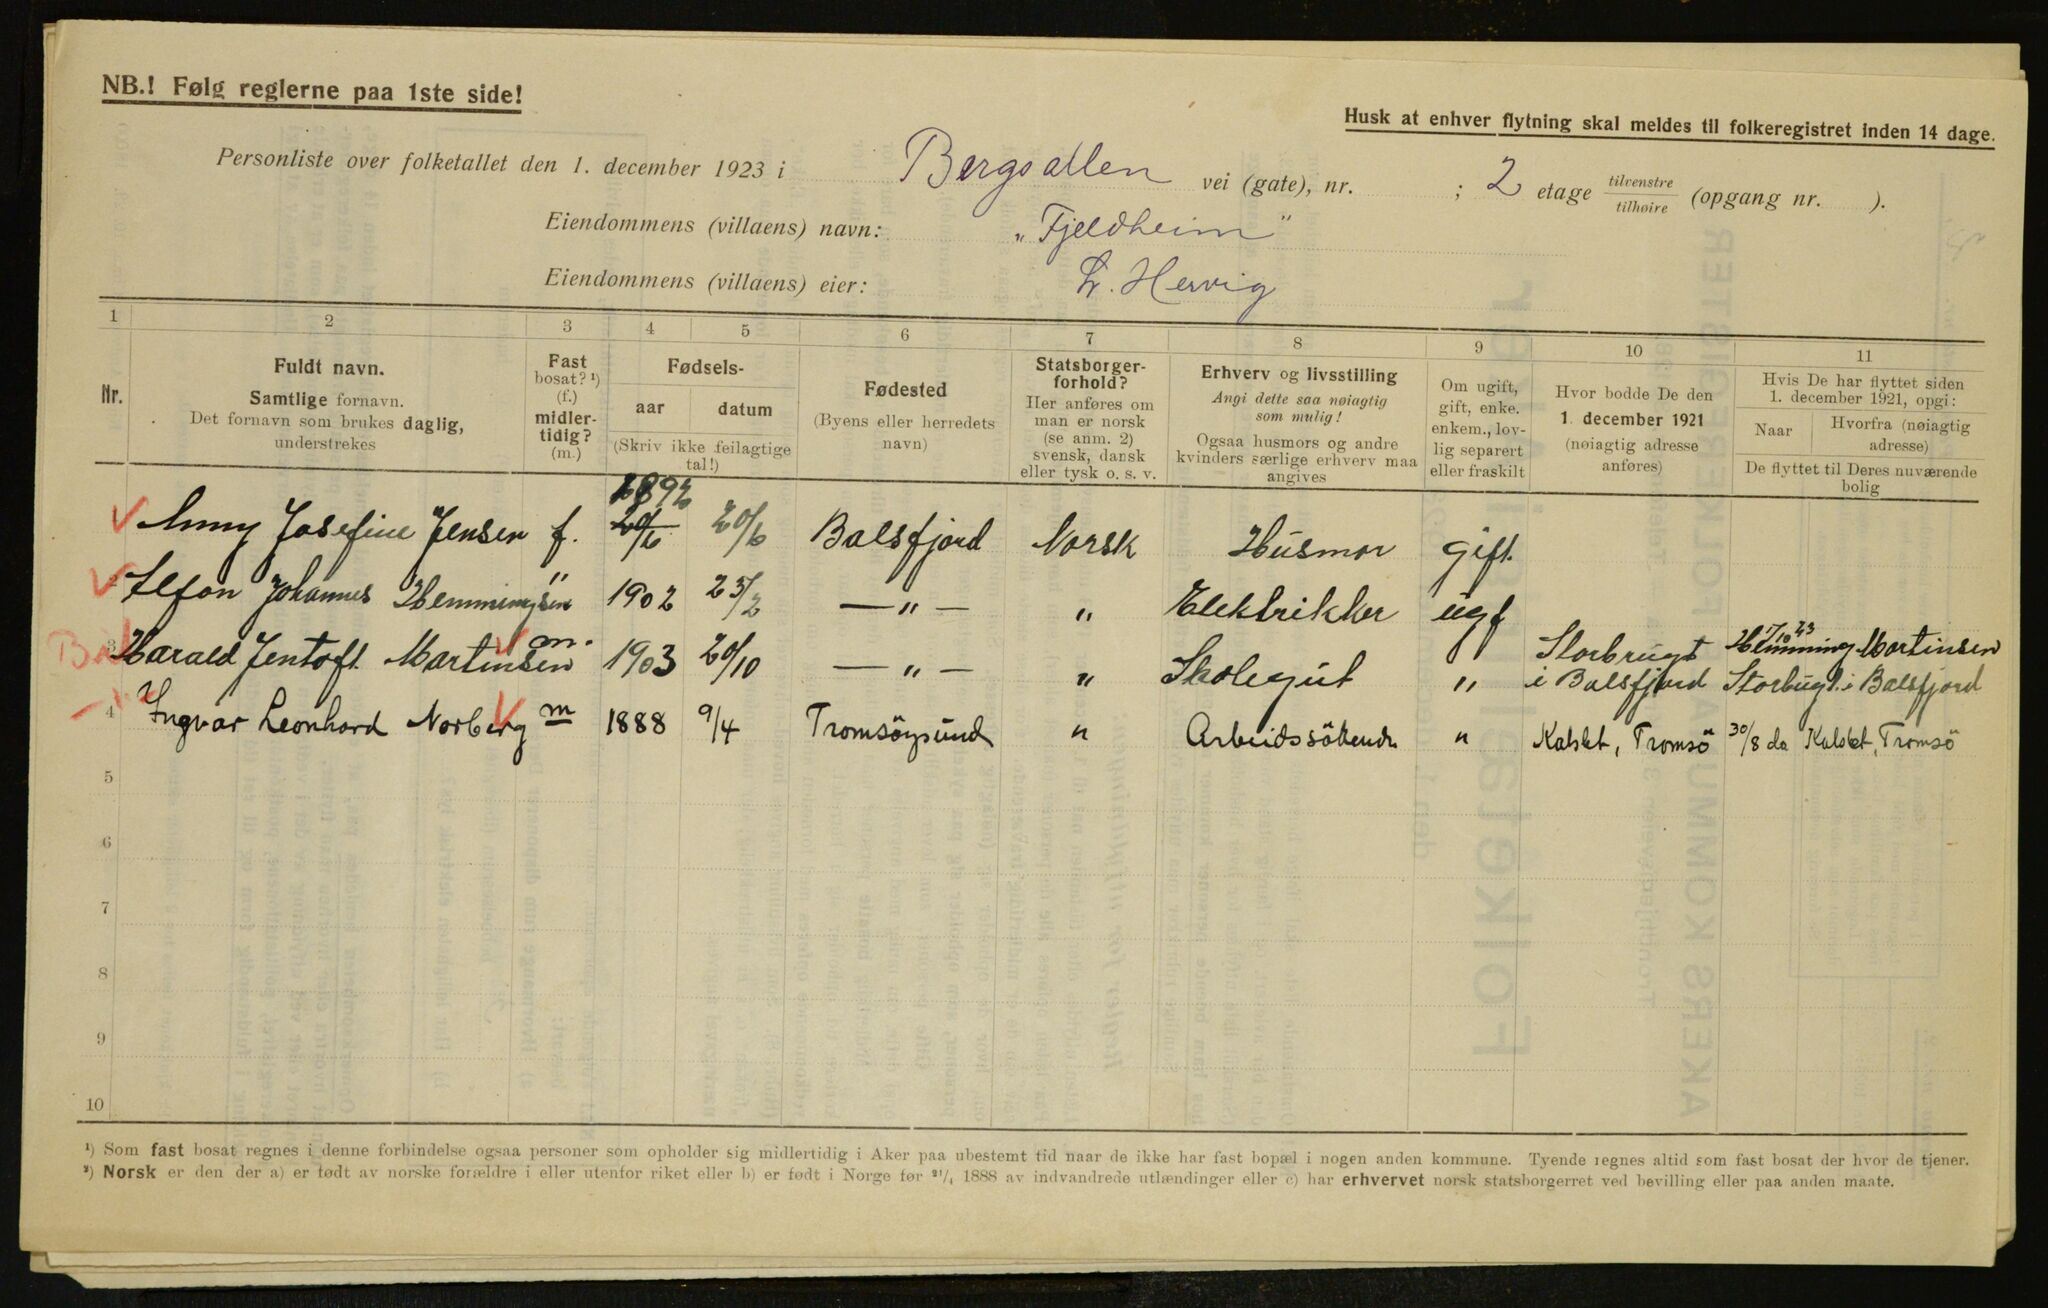 NB.! Følg reglerne paa 1ste side!
Husk at enhver flytning skal meldes til folkeregistret inden 14 dage.
Personliste over folketallet den 1. december 1923 i Bergsalleen vei (gate), nr. ; 2 etage tilvenstre / tilhøire (opgang nr. ).
Eiendommens (villaens) navn: „Fjeldheim"
Eiendommens (villaens) eier: L. Hervig
1 2 3 4 5 6 7 8 9 10 11
Nr.
Fuldt navn.
Samtlige fornavn.
Det fornavn som brukes daglig,
understrekes
Fast
bosat? ¹)
(f.)
midler-
tidig?
(m.)
Fødsels-
aar datum
(Skriv ikke feilagtige
tal!)
Fødested
(Byens eller herredets
navn)
Statsborger-
forhold?
Her anføres om
man er norsk
(se anm. 2)
svensk, dansk
eller tysk o. s. v.
Erhverv og livsstilling
Angi dette saa nøiagtig
som mulig!
Ogsaa husmors og andre
kvinders særlige erhverv maa
angives
Om ugift,
gift, enke.
enkem., lov-
lig separert
eller fraskilt
Hvor bodde De den
1. december 1921
(nøiagtig adresse
anføres)
Hvis De har flyttet siden
1. december 1921, opgi:
Naar Hvorfra (nøiagtig
adresse)
De flyttet til Deres nuværende
bolig
1892
Anny Josefine Jensen f. 20/6 20/6 Balsfjord Norsk Husmor gift.
Alfon Johannes Hemmingsen " 1902 23/2 — " — " Elektrikker ugf
3 Harald Jentoft Martinsen m. 1903 20/10 — " — " Skolegut " Storbrugt i Balsfjord 17/10 23 Hemming Martinsen Storbugt i Balsfjord
4 Ingvar Leonhard Norberg m 1888 9/4 Tromsöysund " Arbeidssökende " Kalslet, Tromsö 30/8 da Kalslet, Tromsö
5
6
7
8
9
10
¹) Som fast bosat regnes i denne forbindelse ogsaa personer som opholder sig midlertidig i Aker paa ubestemt tid naar de ikke har fast bopæl i nogen anden kommune. Tyende regnes altid som fast bosat der hvor de tjener.
²) Norsk er den der a) er født av norske forældre i eller utenfor riket eller b) er født i Norge før ²¹/₄ 1888 av indvandrede utlændinger eller c) har erhvervet norsk statsborgerret ved bevilling eller paa anden maate.